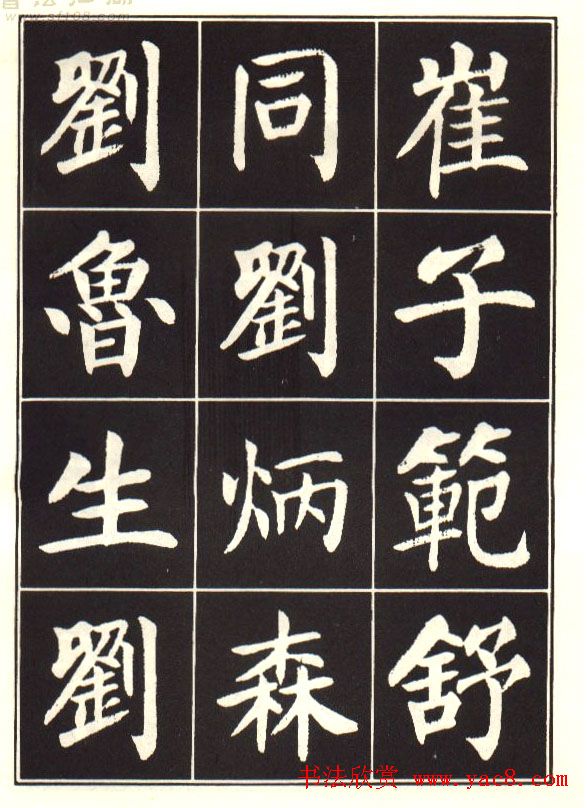 崔子範舒
同劉炳森
劉魯生劉
书法欣赏 www.yac8.com
www.sf108.com